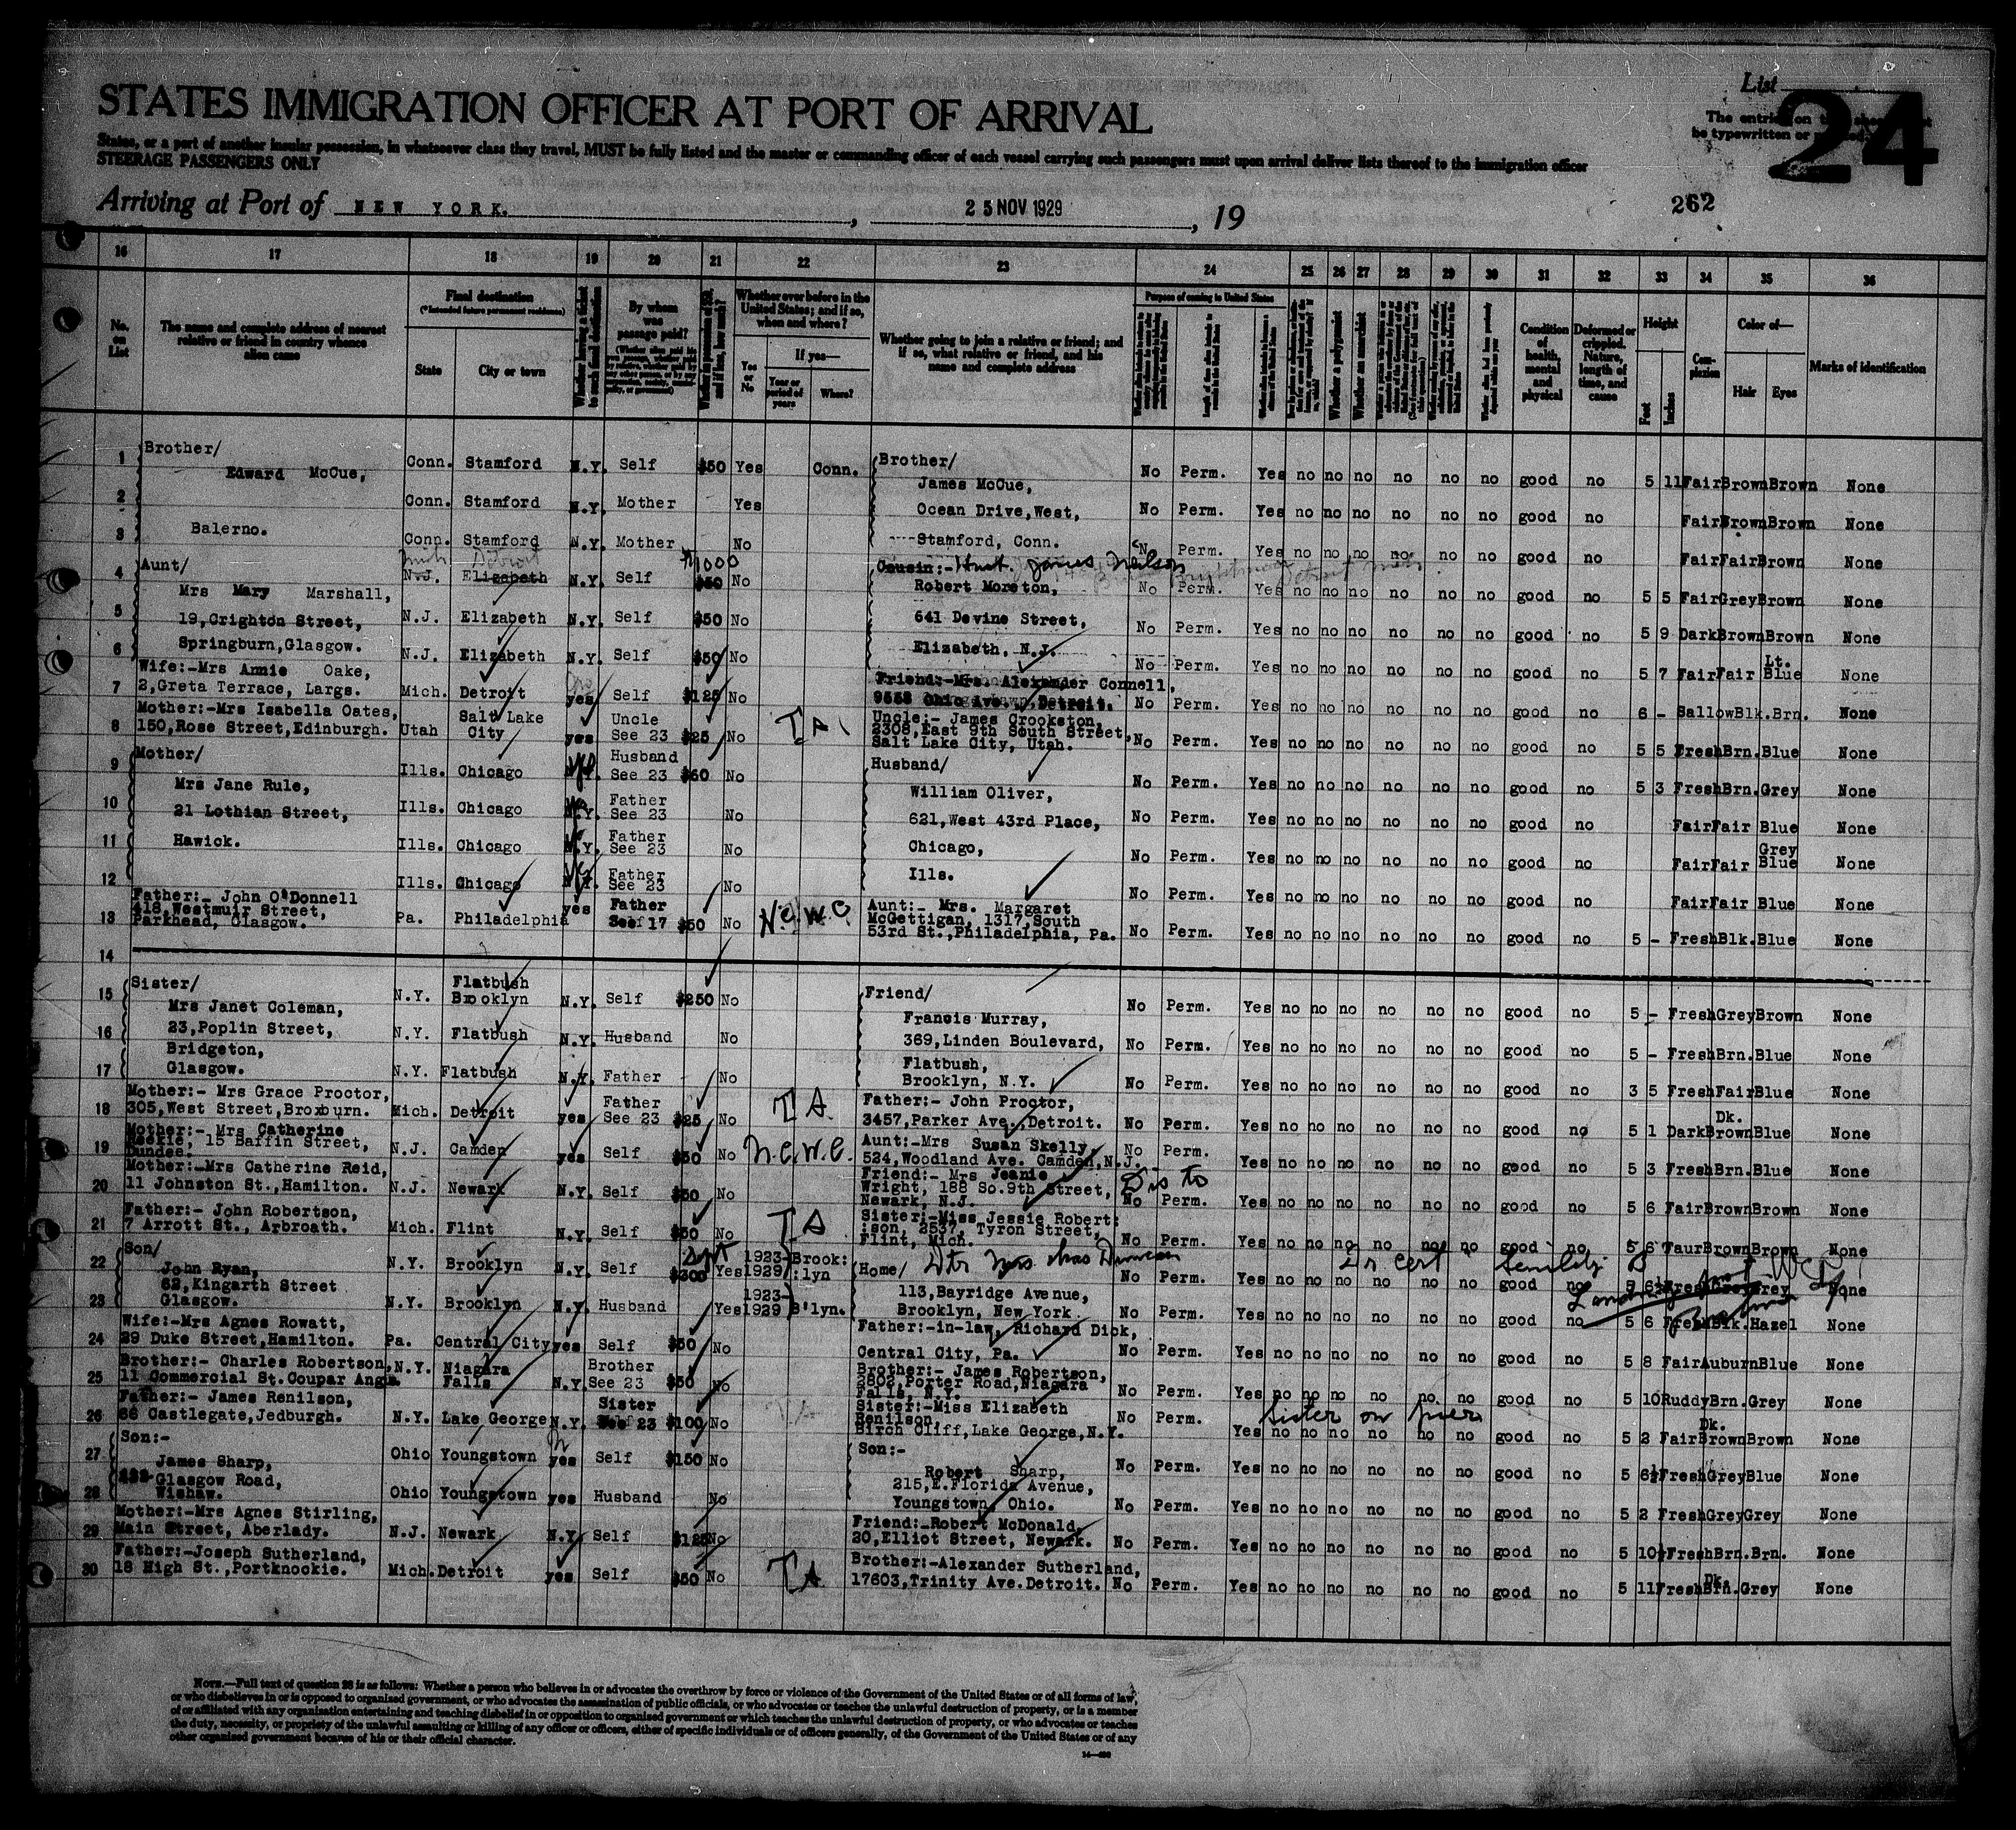 List
24
STATES IMMIGRATION OFFICER AT PORT OF ARRIVAL
The entries on
be typewritten or
States, or a part of another insular possession, in whatsoever class they travel, MUST be fully listed and the master or commanding officer of each vessel carrying such passengers must upon arrival deliver lists thereof to the immigration officer
STEERAGE PASSENGERS ONLY
Arriving at Port of NEW YORK. , 25 NOV 1929 , 19
262
16 17 18 19 20 21 22 23 24 25 26 27 28 29 30 31 32 33 34 35 36
No. on List
The name and complete address of nearest relative or friend in country whence alien came
Final destination
(*Intended future permanent residence)
State City or town
By whom was passage paid?
Whether ever before in the United States; and if so, when and where?
Yes or No
If yes—
Year or period of years Where?
Whether going to join a relative or friend; and if so, what relative or friend, and his name and complete address
Purpose of coming to United States
Whether a polygamist
Whether an anarchist
Condition of health, mental and physical
Deformed or crippled. Nature, length of time, and cause
Height
Feet Inches
Complexion
Color of—
Hair Eyes
Marks of identification
1 Brother/ Edward McCue, Conn. Stamford N.Y. Self $50 Yes Conn. Brother/ James McCue, No Perm. Yes no no no no no no good no 5 11 Fair Brown Brown None
2 Conn. Stamford N.Y. Mother Yes Ocean Drive,West, No Perm. Yes no no no no no no good no Fair Brown Brown None
3 Balerno. Conn. Stamford N.Y. Mother No Stamford, Conn. No Perm. Yes no no no no no no good no Fair Fair Brown None
4 Aunt/ Mrs Mary Marshall, N.J. Elizabeth Detroit N.Y. Self $50 $1000 No Cousin:- James Neilson Robert Moreton, Detroit No Perm. Yes no no no no no no good no 5 5 Fair Grey Brown None
5 19,Crighton Street, N.J. Elizabeth N.Y. Self $50 No 641 Devine Street, No Perm. Yes no no no no no no good no 5 9 Dark Brown Brown None
6 Springburn,Glasgow. N.J. Elizabeth N.Y. Self $50 No Elizabeth, N.J. No Perm. Yes no no no no no no good no 5 7 Fair Fair Lt. Blue None
7 Wife:-Mrs Annie Oake, 2,Greta Terrace, Largs. Mich. Detroit yes Self $125 No Friend:-Mrs. Alexander Connell, 9558 Ohio Ave., Detroit. No Perm. Yes no no no no no no good no 6 - Sallow Blk. Brn. None
8 Mother:-Mrs Isabella Oates, 150,Rose Street,Edinburgh. Utah Salt Lake City yes Uncle See 23 $25 No T A Uncle:- James Crookston, 2308,East 9th South Street, Salt Lake City, Utah. No Perm. Yes no no no no no no good no 5 5 Fresh Brn. Blue None
9 Mother/ Mrs Jane Rule, Ills. Chicago N.Y. Husband See 23 $60 No Husband/ William Oliver, No Perm. Yes no no no no no no good no 5 3 Fresh Brn. Grey None
10 21 Lothian Street, Ills. Chicago N.Y. Father See 23 No 621,West 43rd Place, No Perm. Yes no no no no no no good no Fair Fair Blue None
11 Hawick. Ills. Chicago N.Y. Father See 23 No Chicago, No Perm. Yes no no no no no no good no Fair Fair Grey Blue None
12 Ills. Chicago N.Y. Father See 23 No Ills. No Perm. Yes no no no no no no good no Fair Fair Blue None
13 Father:- John O'Donnell 418,Westmuir Street, Parkhead, Glasgow. Pa. Philadelphia yes Father See 17 $50 No N.C.W.C Aunt:- Mrs. Margaret McGettigan, 1317,South 53rd St.,Philadelphia, Pa. No Perm. Yes no no no no no no good no 5 - Fresh Blk. Blue None
14
15 Sister/ Mrs Janet Coleman, N.Y. Flatbush Brooklyn N.Y. Self $250 No Friend/ Francis Murray, No Perm. Yes no no no no no no good no 5 - Fresh Grey Brown None
16 23,Poplin Street, Bridgeton, N.Y. Flatbush N.Y. Husband No 369,Linden Boulevard, No Perm. Yes no no no no no no good no 5 - Fresh Brn. Blue None
17 Glasgow. N.Y. Flatbush N.Y. Father No Flatbush, Brooklyn, N.Y. No Perm. Yes no no no no no no good no 3 5 Fresh Fair Blue None
18 Mother:- Mrs Grace Proctor, 305,West Street,Broxburn. Mich. Detroit yes Father See 23 $25 No T A Father:- John Proctor, 3457,Parker Ave.,Detroit. No Perm. Yes no no no no no no good no 5 1 Dark Dk. Brown Blue None
19 Mother:- Mrs Catherine 15 Baffin Street, Dundee. N.J. Camden yes Self $50 No N.C.W.C. Aunt:-Mrs Susan Skelly, 524,Woodland Ave. Camden,N.J. No Perm. Yes no no no no no no good no 5 3 Fresh Brn. Blue None
20 Mother:-Mrs Catherine Reid, 11 Johnston St.,Hamilton. N.J. Newark N.Y. Self $50 No Friend:- Mrs Jeanie Wright, 188 So.9th Street, Newark, N.J. Dis to No Perm. Yes no no no no no no good no 5 6 Fair Brown Brown None
21 Father:- John Robertson, 7 Arrott St., Arbroath. Mich. Flint N.Y. Self $50 No T A Sister:-Miss Jessie Robert: :son, 2537, Tyron Street, Flint, Mich. No Perm. Yes no no no no no no good no 5 6 Faur Brown Brown None
22 Son/ John Ryan, N.Y. Brooklyn N.Y. Self $300 Yes 1923-1929 Brook: :lyn Home/ Dtr Mrs Chas Duncan No Perm. Dr cert Senility B Yes no no no no no no good no 5 6½ Fresh Grey Grey None
23 62,Kingarth Street Glasgow. N.Y. Brooklyn N.Y. Husband Yes 1923-1929 B'lyn. 113,Bayridge Avenue, Brooklyn, New York No Perm. Yes no no no no no no good no 5 6 Fresh Blk. Hazel None
24 Wife:-Mrs Agnes Rowatt, 29 Duke Street,Hamilton. Pa. Central City yes Self $50 No Father:-in-law, Richard Dick, Central City, Pa. No Perm. Yes no no no no no no good no 5 8 Fair Auburn Blue None
25 Brother:- Charles Robertson, 11 Commercial St.Coupar Angus. N.Y. Niagara Falls N.Y. Brother See 23 $50 No Brother:- James Robertson, 2802,Porter Road,Niagara Falls, N.Y. No Perm. Yes no no no no no no good no 5 10 Ruddy Brn. Grey None
26 Father:- James Renilson, 66 Castlegate,Jedburgh. N.Y. Lake George N.Y. Sister See 23 $100 No T A Sister:-Miss Elizabeth Renilson, Birch Cliff,Lake George,N.Y. No Perm. Sister on pier Yes no no no no no no good no 5 2 Fair Dk. Brown Brown None
27 Son:- James Sharp, Ohio Youngstown yes Self $150 No Son:- Robert Sharp, No Perm. Yes no no no no no no good no 5 6½ Fresh Grey Blue None
28 Glasgow Road, Wishaw. Ohio Youngstown yes Husband No 215,E.Florida Avenue, Youngstown, Ohio. No Perm. Yes no no no no no no good no 5 2 Fresh Grey Grey None
29 Mother:-Mrs Agnes Stirling, Main Street, Aberlady. N.J. Newark N.Y. Self $125 No Friend:-Robert McDonald, 20,Elliot Street, Newark. No Perm. Yes no no no no no no good no 5 10½ Fresh Brn. Brn. None
30 Father:-Joseph Sutherland, 18 High St.,Portknockie. Mich. Detroit yes Self $50 No T A Brother:-Alexander Sutherland, 17603,Trinity Ave.Detroit. No Perm. Yes no no no no no no good no 5 11 Fresh Dk. Brn. Grey None
NOTE.—Full text of question 28 is as follows: Whether a person who believes in or advocates the overthrow by force or violence of the Government of the United States or of all forms of law,
or who disbelieves in or is opposed to organized government, or who advocates the assassination of public officials, or who advocates or teaches the unlawful destruction of property, or is a member
of or affiliated with any organization entertaining and teaching disbelief in or opposition to organized government or which teaches the unlawful destruction of property, or who advocates or teaches
the duty, necessity, or propriety of the unlawful assaulting or killing of any officer or officers, either of specific individuals or of officers generally, of the Government of the United States or of any
other organized government because of his or their official character.